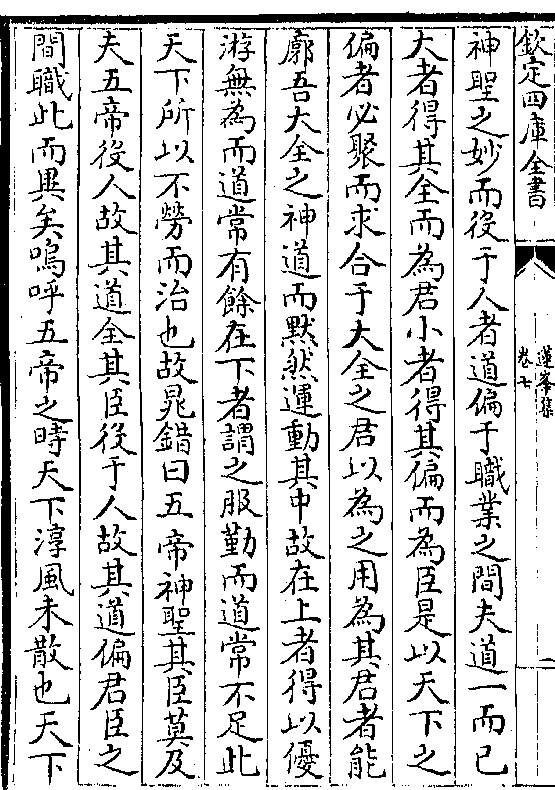 欽定四庫全書
蓮峯集
卷七
神聖之妙而役于人者道偏于職業之間夫道一而已
大者得其全而為君小者得其偏而為臣是以天下之
偏者必聚而求合于大全之君以為之用為其君者能
廓吾大全之神道而黙然運動其中故在上者得以優
游無為而道常有餘在下者謂之服勤而道常不足此
天下所以不勞而治也故晁錯曰五帝神聖其臣莫及
夫五帝役人故其道全其臣役于人故其道偏君臣之
間職此而異矣嗚呼五帝之時天下淳風未散也天下